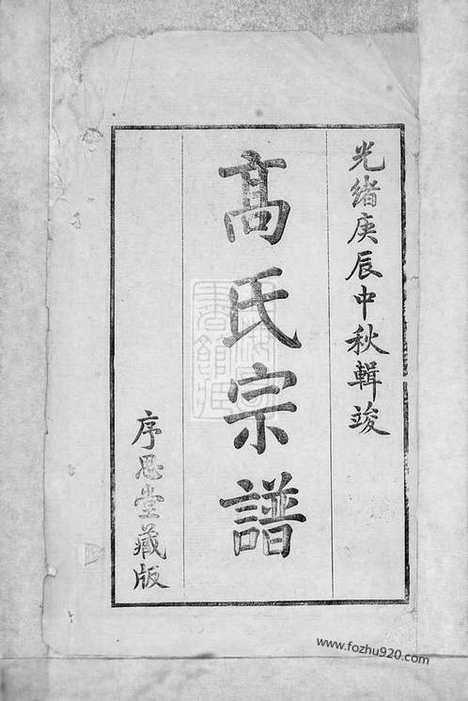 光緒庚辰中秋輯竣
高氏宗譜
序思堂藏版
www.fozhu920.com